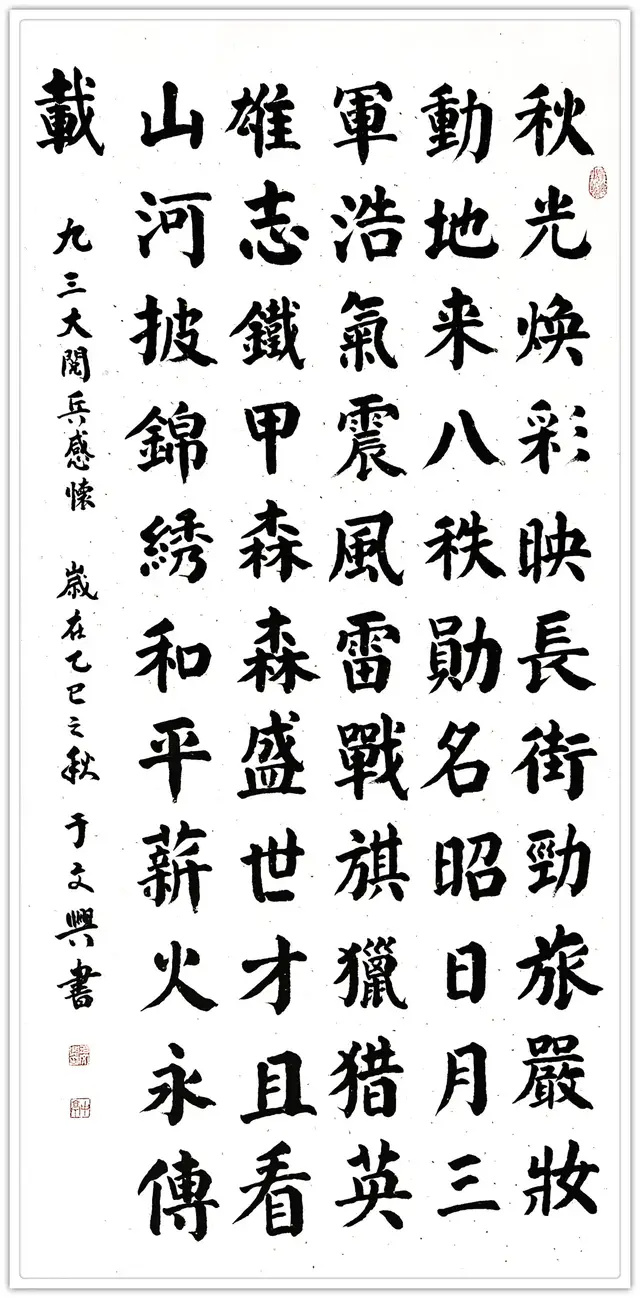 秋光焕彩映長街勁旅嚴妝
動地来八秩勛名昭日月三
軍浩氣震風雷戰旗獵猎英
雄志鐵甲森森盛世才且看
山河披錦綉和平薪火永傳
載
九三大閱兵感懷 歲在乙巳之秋 于文興書